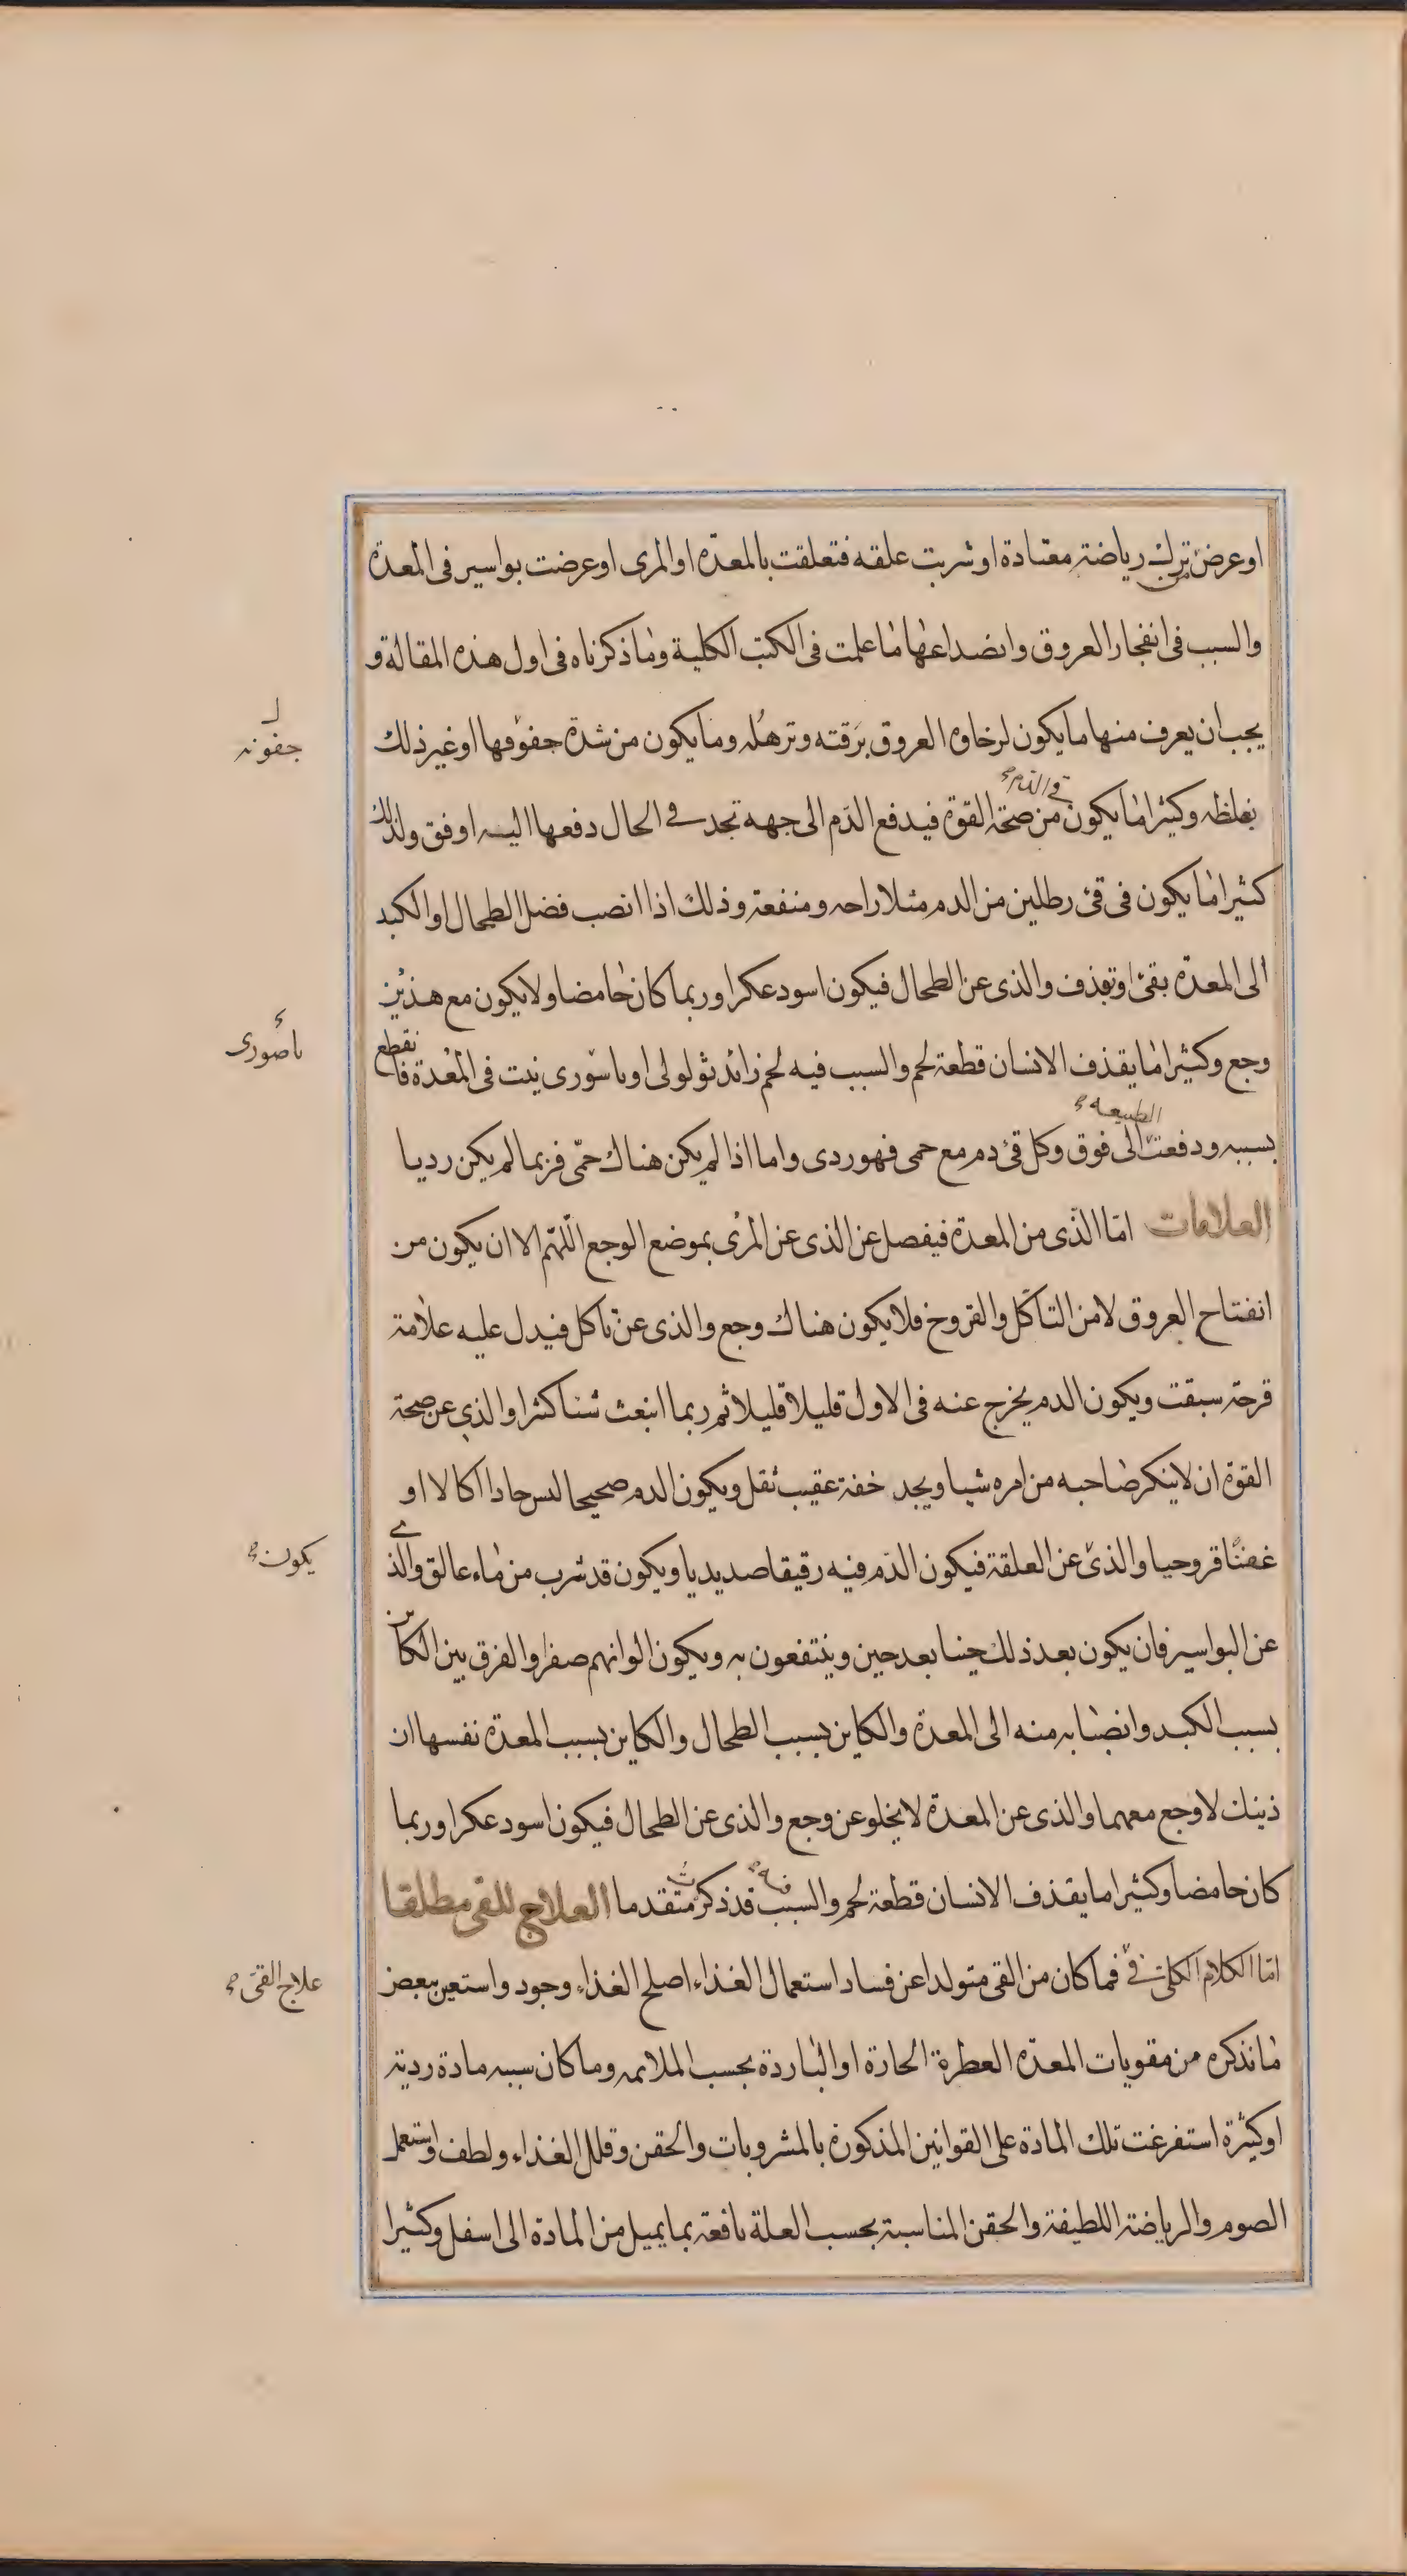 او عرض من ترك رياضة معتادة او شربت علقه فتعلقت بالمعدّه او المرى او عرضت بواسير فى المعدة
والسبب فى انفجار العروق وانصداعها ما علمت فى الكتب الكلية وما ذكرناه فى اول هذه المقالة و
يجب ان يعرف منها ما يكون لرخاوه العروق برقته وترهله وما يكون من شدة جفوفها او غير ذلك
جفونه
بغلظه وكثيرا ما يكون قى الدم من صحة القوة فيدفع الدم الى جهه تجد فى الحال دفعها اليه اوفق ولذلك
كثيرا ما يكون فى قئ رطلين من الدم مثلا راحه ومنفعة وذلك اذا انصب فضل الطحال او الكبد
الى المعدّه بقئ او تقذف والذى عن الطحال فيكون اسود عكرا وربما كان حامضا ولا يكون مع هذين
وجع وكثيرا ما يقذف الانسان قطعة لحم والسبب فيه لحم زائد ثولولى او باسورى ينبت فى المعدة فانقطع
ناصورى
بسببه ودفعت الطبيعه الى فوق وكل قئ دم مع حمى فهو ردى واما اذا لم يكن هناك حمّى فربما لم يكن رديا
العلامات امّا الذى من المعدة فيفصل عن الذى عن المرئ بموضع الوجع اللهمّ الا ان يكون من
انفتاح العروق لا من التأكل والقروح فلا يكون هناك وجع والذى عن تاكل فيدل عليه علامة
قرحة سبقت ويكون الدم يخرج عنه فى الاول قليلا قليلا ثم ربما انبعث شيئا كثيرا والذى عن صحة
القوة ان لا ينكر صاحبه من امره شيا ويجد خفة عقيب ثقل ويكون الدم صحيحا ليس حادا اكالا او
عفنا قروحيا والذى عن العلقة فيكون الدم فيه رقيقا صديديا ويكون قد شرب من ماء عالق والذى
يكون
عن البواسير فان يكون بعد ذلك حينا بعد حين وينتفعون به ويكون الوانهم صفرا والفرق بين الكاين
بسبب الكبد وانصبابه منه الى المعدة والكاين بسبب الطحال والكاين بسبب المعدة نفسها ان
ذينك لا وجع معهما والذى عن المعدة لا يخلو عن وجع والذى عن الطحال فيكون اسود عكرا وربما
كان حامضا وكثيرا ما يقذف الانسان قطعة لحم والسبب فيه قد ذكر متقدما العلاج للقى مطلقا
امّا الكلام الكلى فى فما كان من القى متولدا عن فساد استعمال الغذاء اصلح الغذاء وجود واستعين ببعض
علاج القئ
ما نذكره من مقويات المعدّه العطرة الحارة او الباردة بحسب الملايمه وما كان سببه مادة ردية
او كثيرة استفرغت تلك المادة على القوانين المذكورة بالمشروبات والحقن وقلل الغذاء ولطف واستعمل
الصوم والرياضة اللطيفة والحقن المناسبة بحسب العلة نافعة بما يميل من المادة الى اسفل وكثيرا